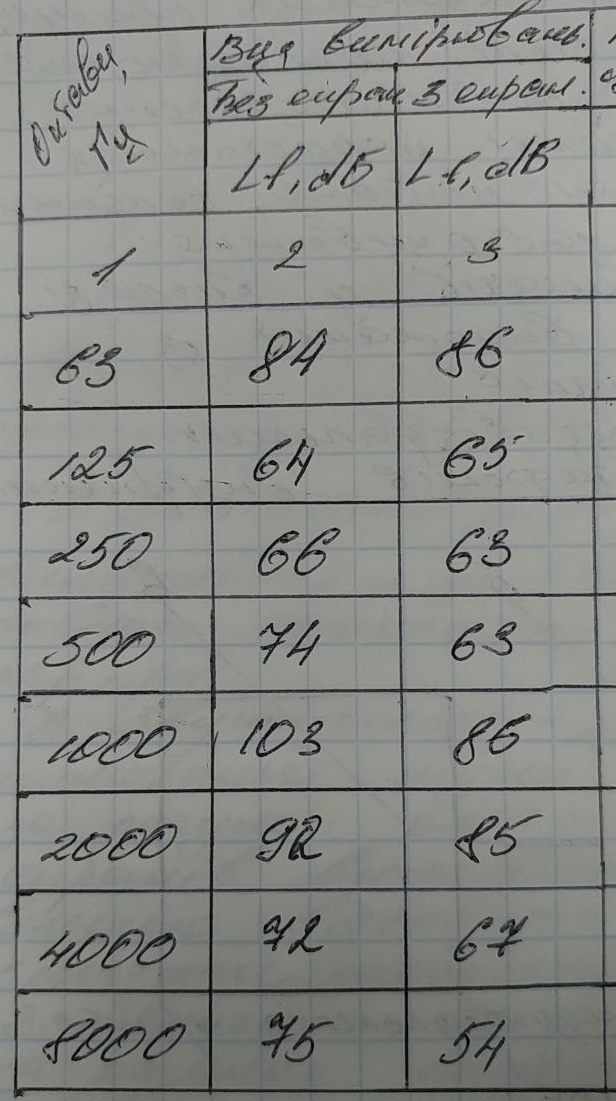 Октави, Гц
Вид вимірювань.
Без екран. З екран.
L1, dБ L1, dБ
1 2 3
63 84 86
125 64 65
250 66 63
500 74 63
1000 103 86
2000 92 85
4000 72 67
8000 75 54